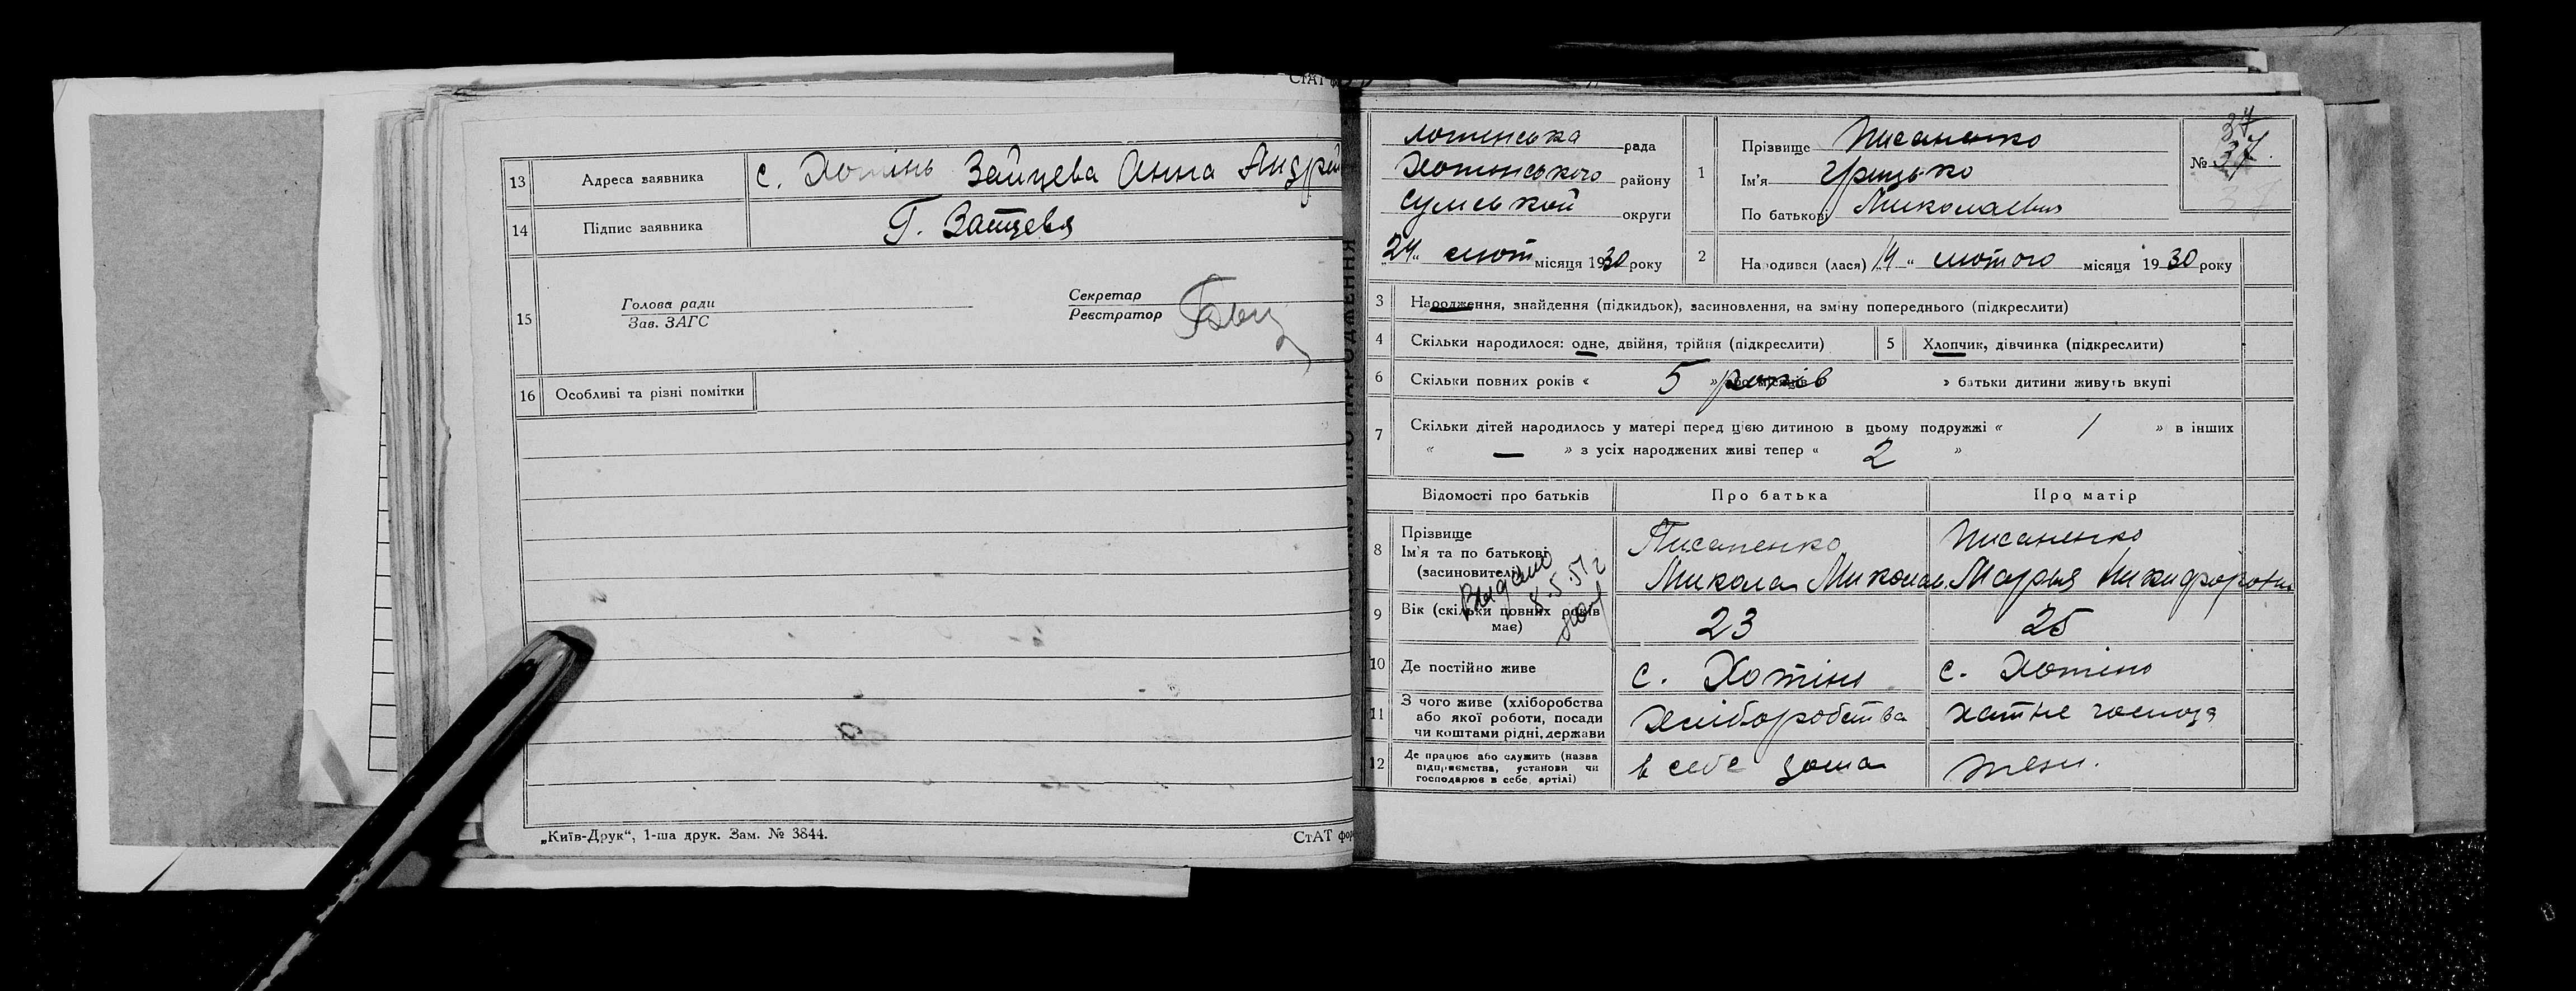 СтАТ
13 Адреса заявника с. Хотінь Зайцева Анна Андрей
14 Підпис заявника Г. Затцева
15 Голова ради Секретар
Зав. ЗАГС Реєстратор
16 Особливі та різні помітки
„Київ-Друк“, 1-ша друк. Зам. № 3844. СтАТ фор
рада
Хотинського району
Сумської округи
24 " лют місяця 1930 року
1 Прізвище Писаненко
Ім'я Грицько
По батькові Миколаевич
№ 37.
37
2 Народився (лася) 14 " лютого місяця 1930 року
3 Народження, знайдення (підкидьок), засиновлення, на зміну попереднього (підкреслити)
4 Скільки народилося: одне, двійня, трійня (підкреслити) 5 Хлопчик, дівчинка (підкреслити)
6 Скільки повних років « 5 » років » батьки дитини живуть вкупі
7 Скільки дітей народилось у матері перед цією дитиною в цьому подружжі « 1 » в інших
« — » з усіх народжених живі тепер « 2 »
Відомості про батьків Про батька Про матір
8 Прізвище Писаненко Писаненко
Ім'я та по батькові
(засновителі) Микола Миколаев. Марья Никифоровна
Выдано
8.5.51 г
9 Вік (скільки повних років має) 23 25
10 Де постійно живе с. Хотінь с. Хотінь
11 З чого живе (хліборобства
або якої роботи, посади
чи коштами рідні, держави Хліборобства хатнє господ
12 Де працює або служить (назва
підприємства, установи чи
господарює в себе, артілі) в себе дома